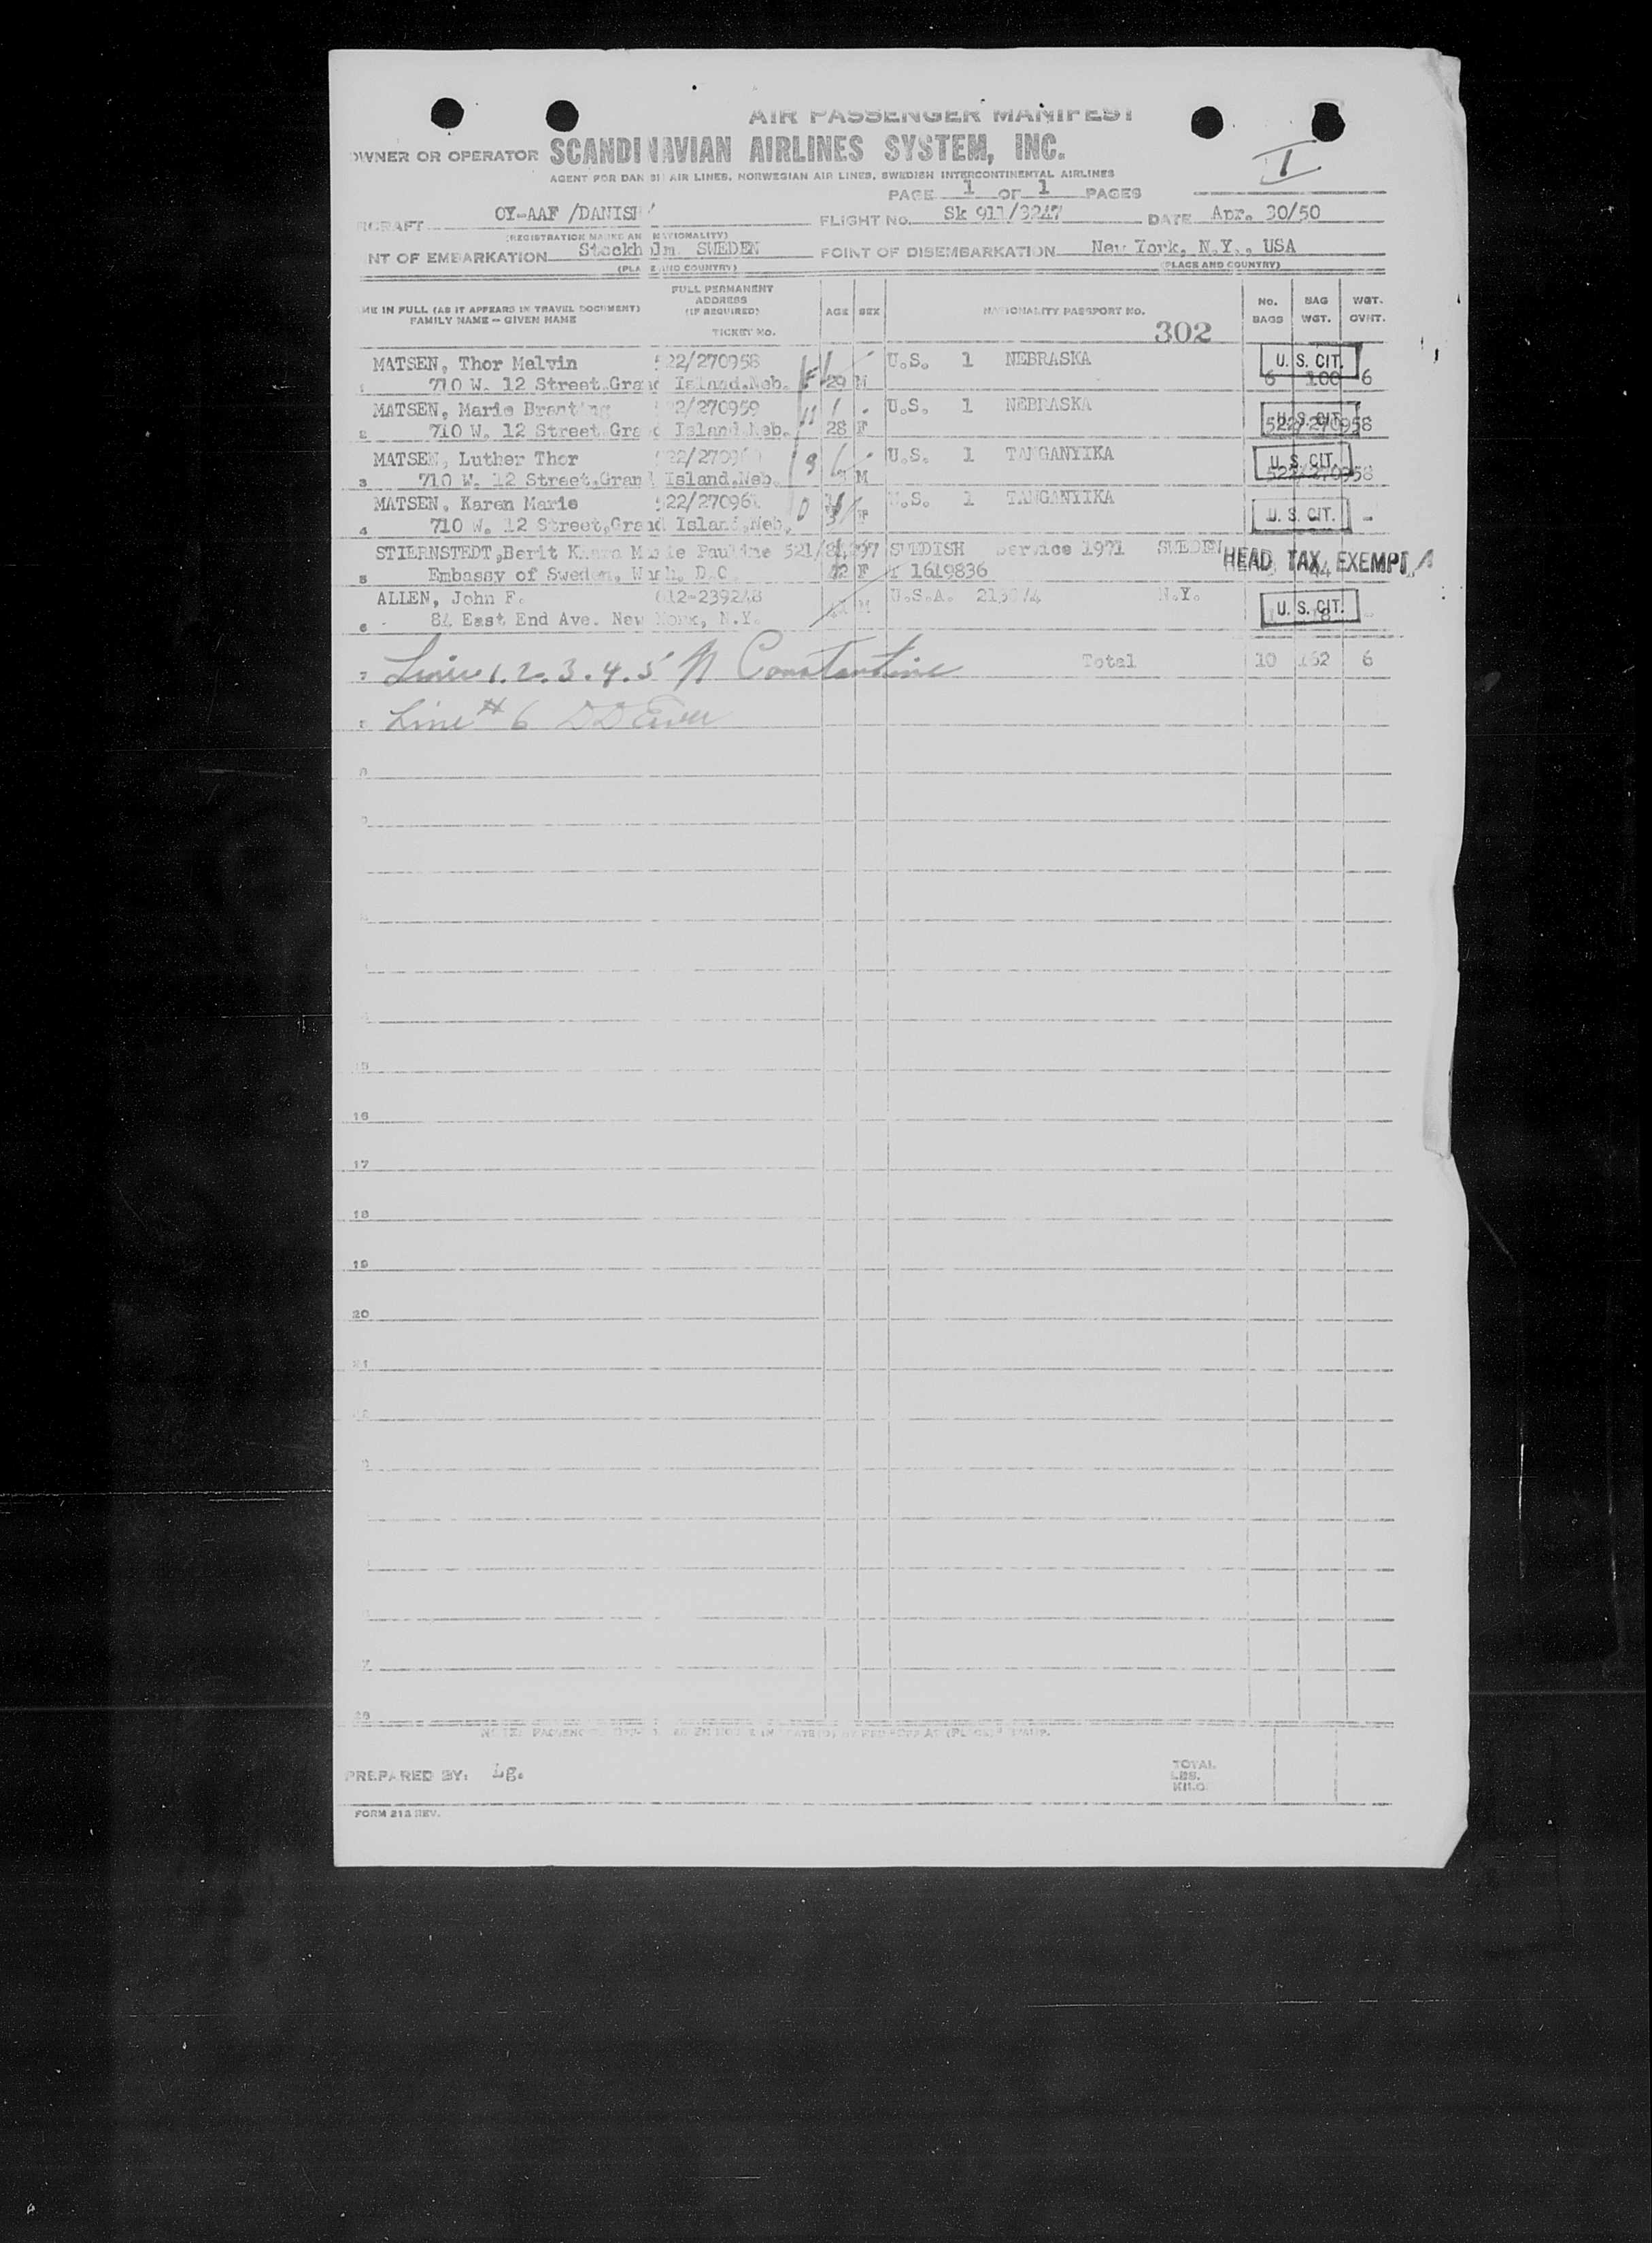 AIR PASSENGER MANIFEST
OWNER OR OPERATOR SCANDINAVIAN AIRLINES SYSTEM, INC.
I
AGENT FOR DANISH AIR LINES, NORWEGIAN AIR LINES, SWEDISH INTERCONTINENTAL AIRLINES
PAGE 1 OF 1 PAGES
OY-AAF /DANISH/ FLIGHT No. Sk 911/ DATE Apr. 30/50
(REGISTRATION MARKS AND NATIONALITY)
NT OF EMBARKATION Stockholm SWEDEN POINT OF DISEMBARKATION New York, N.Y., USA
(PLACE AND COUNTRY) (PLACE AND COUNTRY)
ME IN FULL (AS IT APPEARS IN TRAVEL DOCUMENT) FAMILY NAME -- GIVEN NAME FULL PERMANENT ADDRESS (IF REQUIRED) TICKET No. AGE SEX NATIONALITY PASSPORT NO. No. BAGS BAG WGT. WGT. OVHT.
302
MATSEN, Thor Melvin 522/270958 U.S. 1 NEBRASKA U. S. CIT.
1 710 W. 12 Street.Grand Island.Neb. 29 M 6 100 6
MATSEN, Marie 522/270959 U.S. 1 NEBRASKA U. S. CIT.
2 710 W. 12 Street.Grand Island.Neb. 28 F 522/270958
MATSEN, Luther Thor U.S. 1 TANGANYIKA U. S. CIT.
3 710 W. 12 Street.Grand Island.Neb. M 522/270958
MATSEN, Karen Marie 522/270961 U.S. 1 TANGANYIKA
4 710 W. 12 Street,Grand Island,Neb. F U. S. CIT. -
STIERNSTEDT,Berit Marie Pauline SWEDISH Service 1971 SWEDEN HEAD TAX EXEMPT
5 Embassy of Sweden, Wash. D.C. F 1619836
ALLEN, John F. 612-239248 U.S.A. N.Y. U. S. CIT.
6 84 East End Ave. New York, N.Y. M
7 Lines 1.2.3.4.5 N Constantine Total 10 162 6
8 Line # 6
16
17
18
19
20
21
28
PREPARED BY: Lg.
TOTAL
LBS.
KILO.
FORM 212 REV.